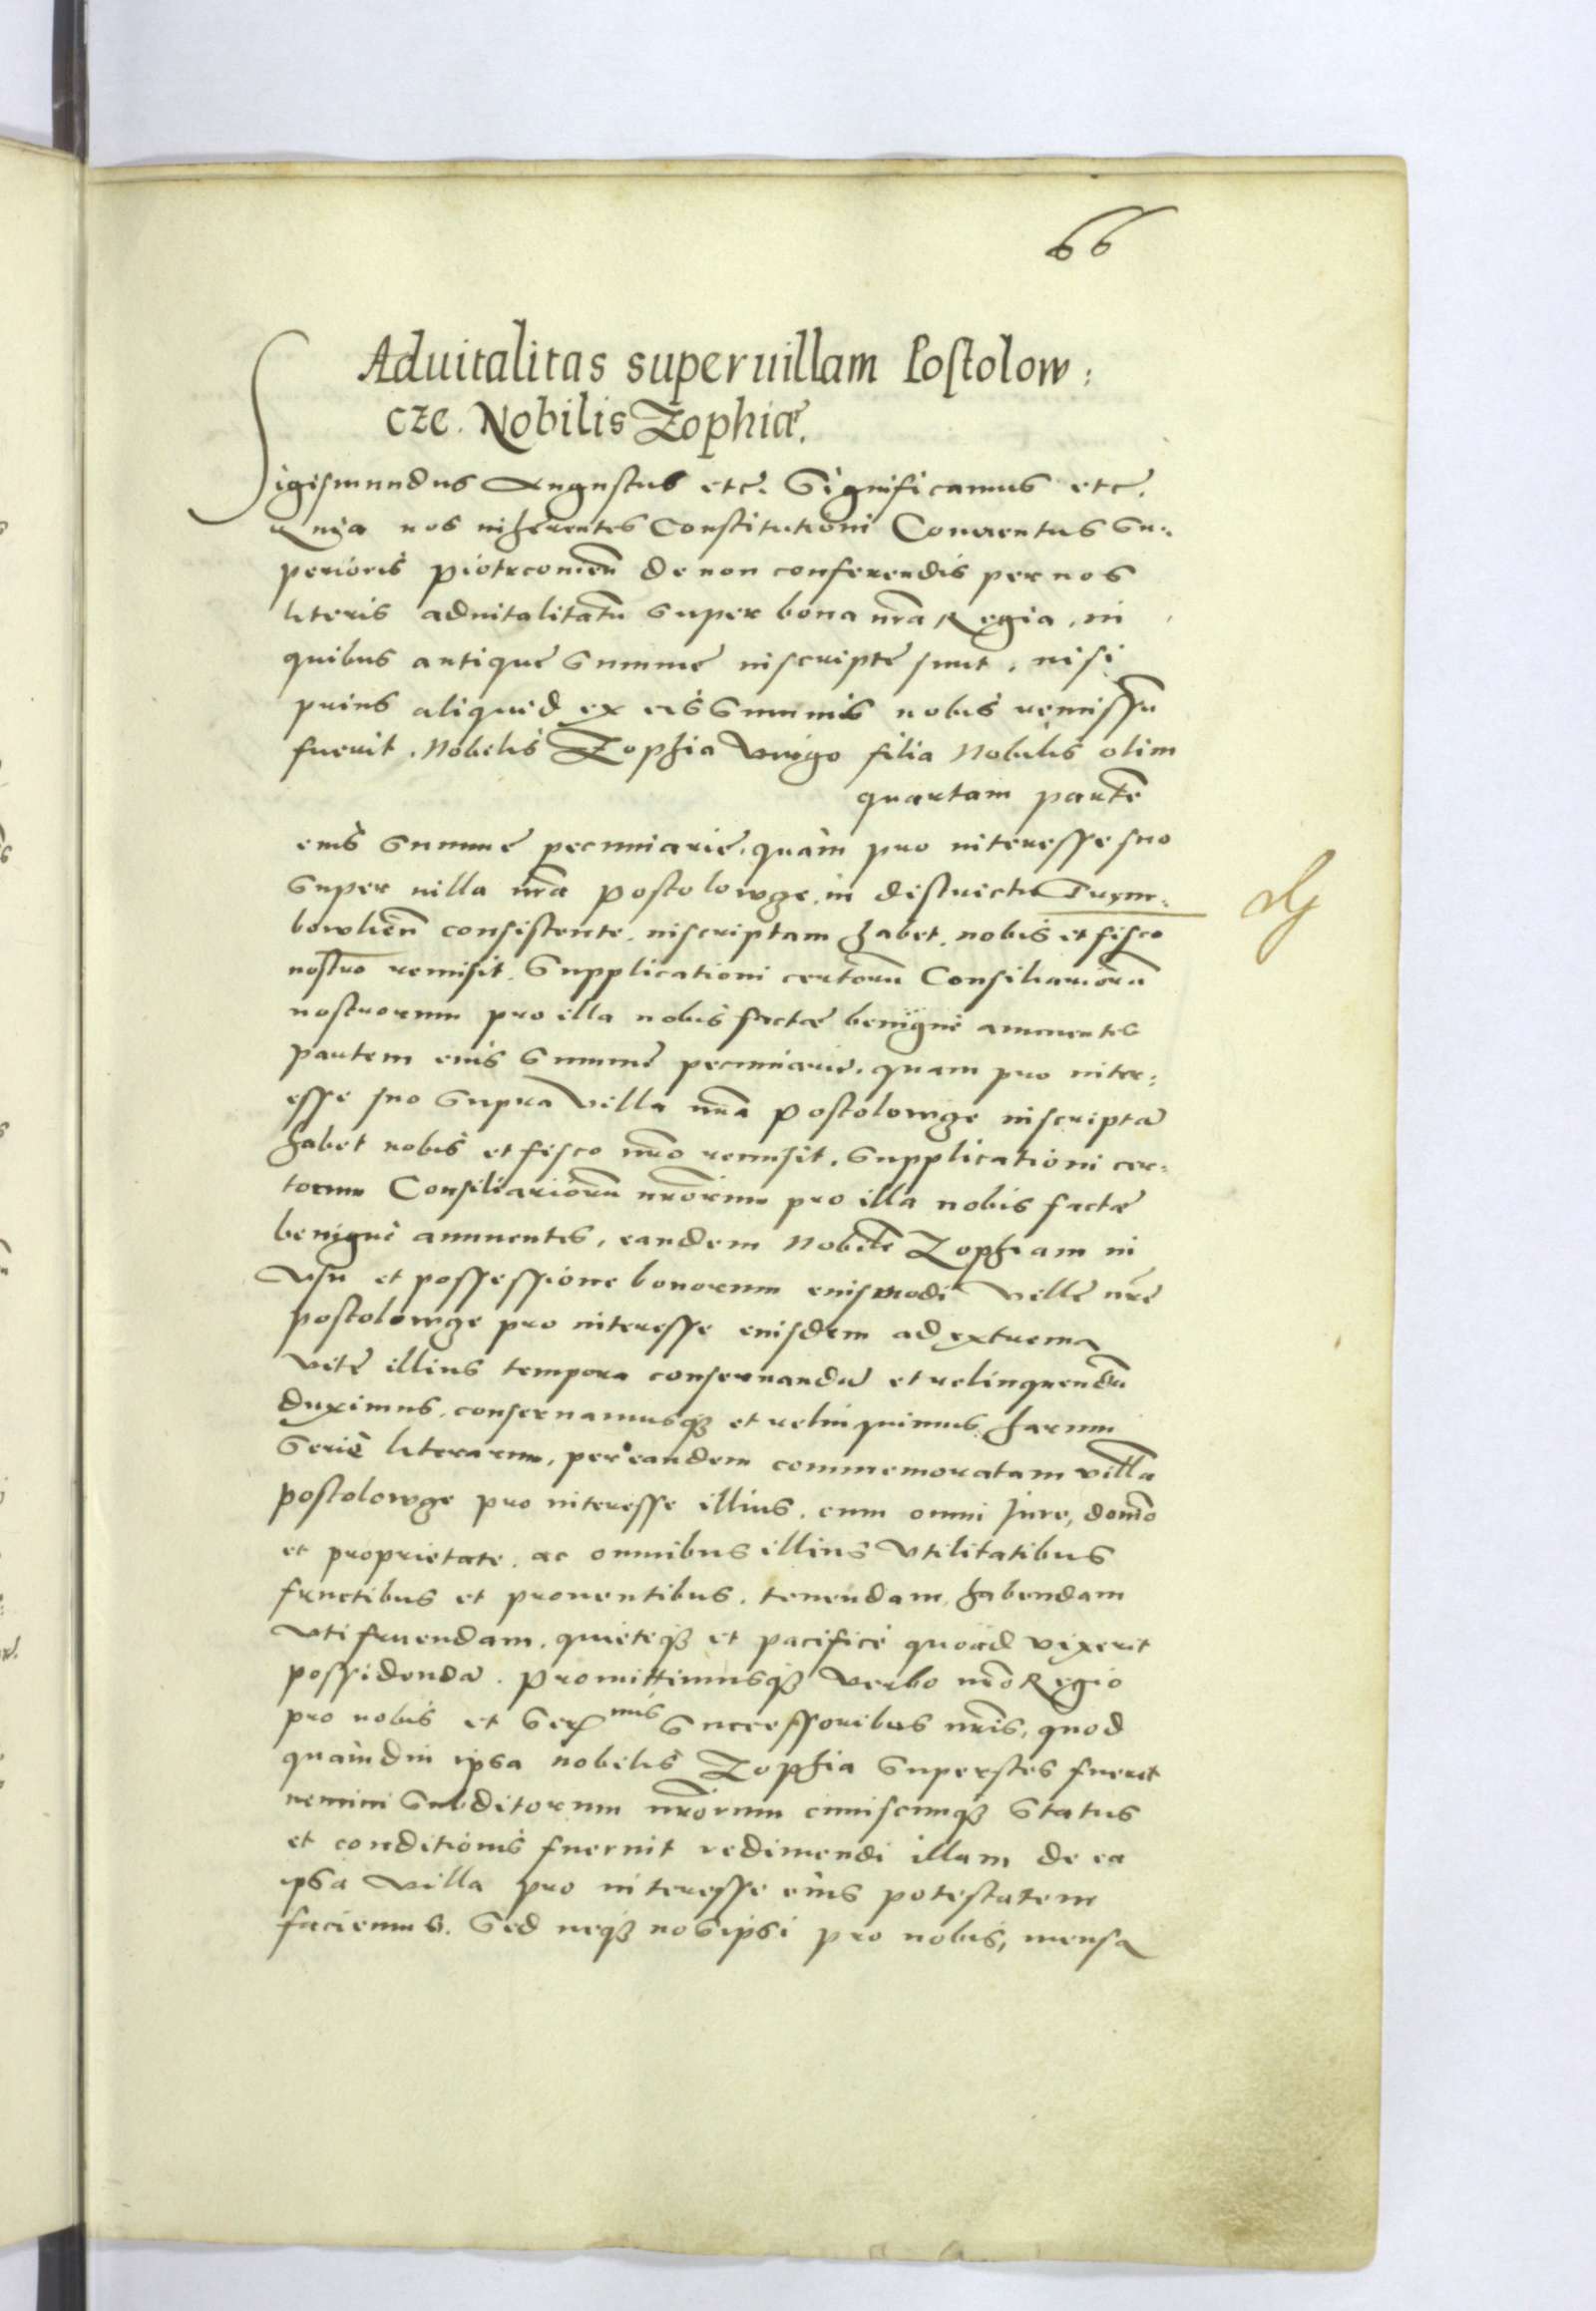 66
Aduitalitas super uillam Postolow:
cze. Nobilis Zophiæ.
Sigismundus Augustus etc. Significamus etc.
Quia nos inherentes Constitutioni Conuentus Su:
perioris Piotrcouieñ de non conferendis per nos
literis aduitalitatũ super bona nr̃a Regia, in
quibus antique summe inscripte sunt, nisi
prius aliquid ex eis summis nobis remissũ
fuerit. Nobilis Zophia Virgo filia Nobilis olim
quartam partẽ
eius summe pecuniarie, quam pro interesse suo
super uilla nr̃a Postolowge in districtu Trym:
bowlieñ consistente, inscriptam habet, nobis et fisco
nostro remisit. Supplicationi certorũ Consiliariorũ
nostrorum pro illa nobis factæ benigne annuentes
partem eius summe pecuniarie, quam pro inter:
esse suo supra Villa nr̃a Postolowge inscriptã
habet nobis et fisco nr̃o remisit, Supplicationi cer:
torum Consiliariorũ nr̃orum pro illa nobis factæ
benigne annuentes, eandem Nobilẽ Zophiam in
Vsu et possessione bonorum eiusmodi Ville nr̃e
Postolowge pro interesse eiusdem ad extrema
vite illius tempora conseruandã et relinquendã
duximus, conseruamusqȝ et relinquimus harum
Serie literarum, per eandem commemoratam villã
Postolowge pro interesse illius, cum omni Iure, domĩo
et proprietate, ac omnibus illius Vtilitatibus
fructibus et prouentibus, tenendam, habendam
Vti fruendam, quieteqȝ et pacifice quoad vixerit
possidendã. Promittimusqȝ Verbo nr̃o Regio
pro nobis et Ser̃mis Successoribus nr̃is, quod
quamdiu ipsa nobilis Zophia superstes fuerit
nemini Subditorum nr̃orum cuiuscumqȝ Status
et conditionis fuerint redimendi illam de ea
ipsa Villa pro interesse eius potestatem
faciemus. Sed neqȝ nos ipsi pro nobis, mensa